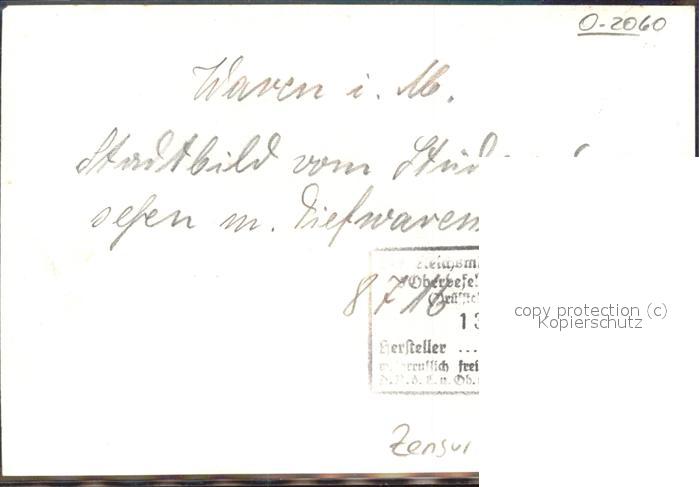 O-2060
Waren i. M.
Stadtbild vom Süd
sehen m. Tiefwaren
8716
Reichsm
Oberbefe
13
Hersteller ...
frei
D.R.d.L.u.Ob.
Zensur
copyright protection (c)
Kopierschutz